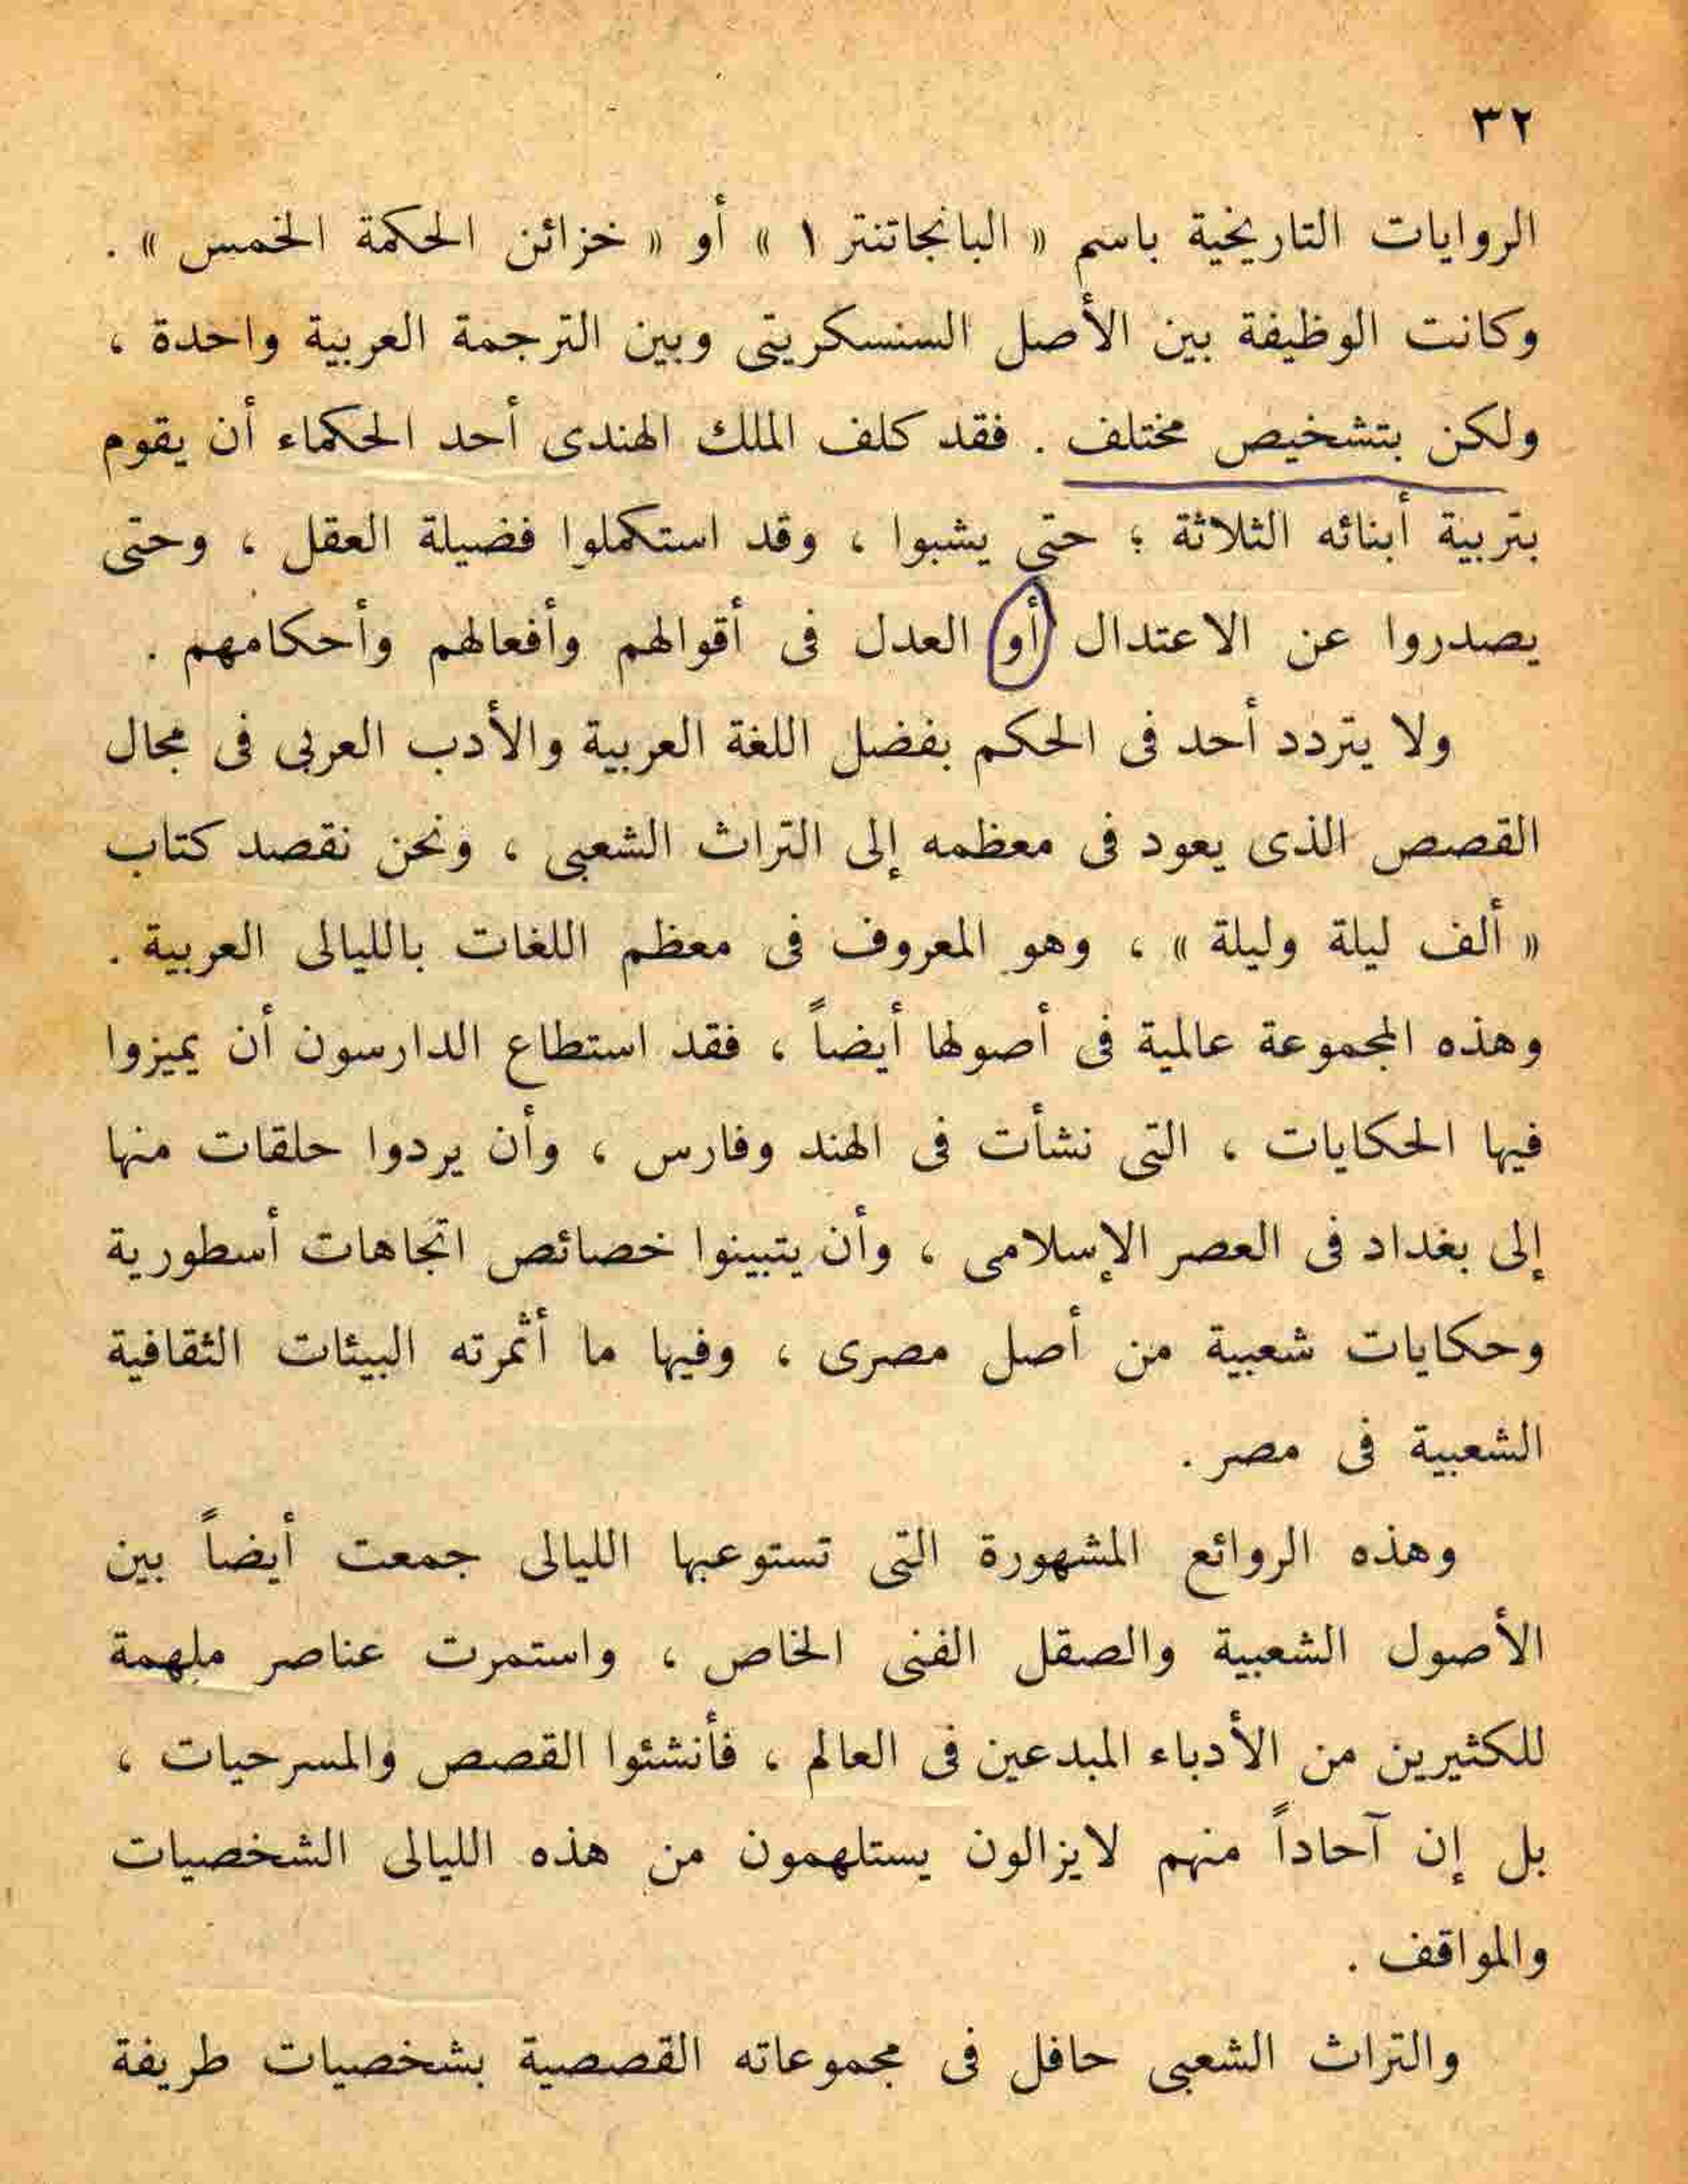 ٣٢
الروايات التاريخية باسم « البانجاتنتر ١ » أو « خزائن الحكمة الخمس » .
وكانت الوظيفة بين الأصل السنسكريتى وبين الترجمة العربية واحدة ،
ولكن بتشخيص مختلف . فقد كلف الملك الهندى أحد الحكماء أن يقوم
بتربية أبنائه الثلاثة ؛ حتى يشبوا ، وقد استكملوا فضيلة العقل ، وحتى
يصدروا عن الاعتدال أو العدل فى أقوالهم وأفعالهم وأحكامهم .
ولا يتردد أحد فى الحكم بفضل اللغة العربية والأدب العربى فى مجال
القصص الذى يعود فى معظمه إلى التراث الشعبى ، ونحن نقصد كتاب
« ألف ليلة وليلة » ، وهو المعروف فى معظم اللغات بالليالى العربية .
وهذه المجموعة عالمية فى أصولها أيضاً ، فقد استطاع الدارسون أن يميزوا
فيها الحكايات ، التى نشأت فى الهند وفارس ، وأن يردوا حلقات منها
إلى بغداد فى العصر الإسلامى ، وأن يتبينوا خصائص اتجاهات أسطورية
وحكايات شعبية من أصل مصرى ، وفيها ما أثمرته البيئات الثقافية
الشعبية فى مصر .
وهذه الروائع المشهورة التى تستوعبها الليالى جمعت أيضاً بين
الأصول الشعبية والصقل الفنى الخاص ، واستمرت عناصر ملهمة
للكثيرين من الأدباء المبدعين فى العالم ، فأنشئوا القصص والمسرحيات ،
بل إن آحاداً منهم لايزالون يستلهمون من هذه الليالى الشخصيات
والمواقف .
والتراث الشعبى حافل فى مجموعاته القصصية بشخصيات طريفة